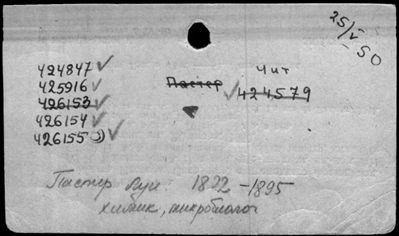 25/V-50
424847 ✓
425916 ✓
426153 ✓
426154 ✓
426155 ✓
Пастер
Чит
✓ 424579
Пастер Луи 1822-1895
химик, микробиолог